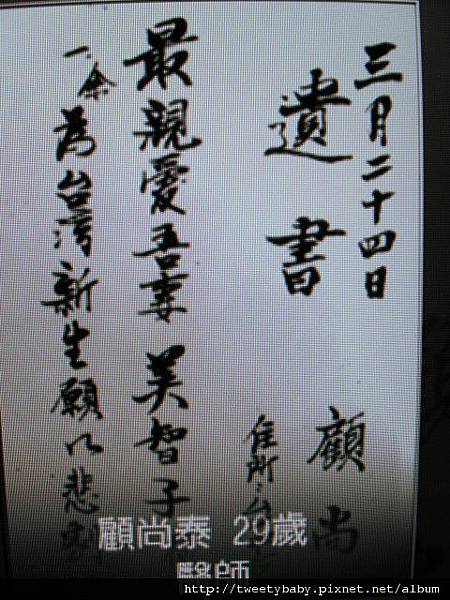 三月二十四日
遺書
顧尚
住所、台
最親愛吾妻 美智子
一余為台灣新生願以悲劇
顧尚泰 29歲
http://tweetybaby.pixnet.net/album